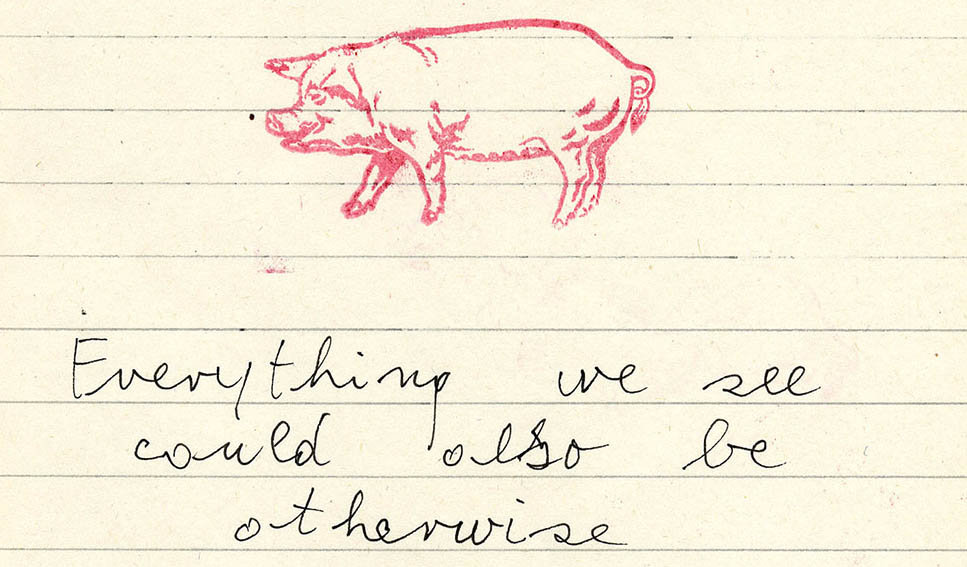 Everything we see
could also be
otherwise